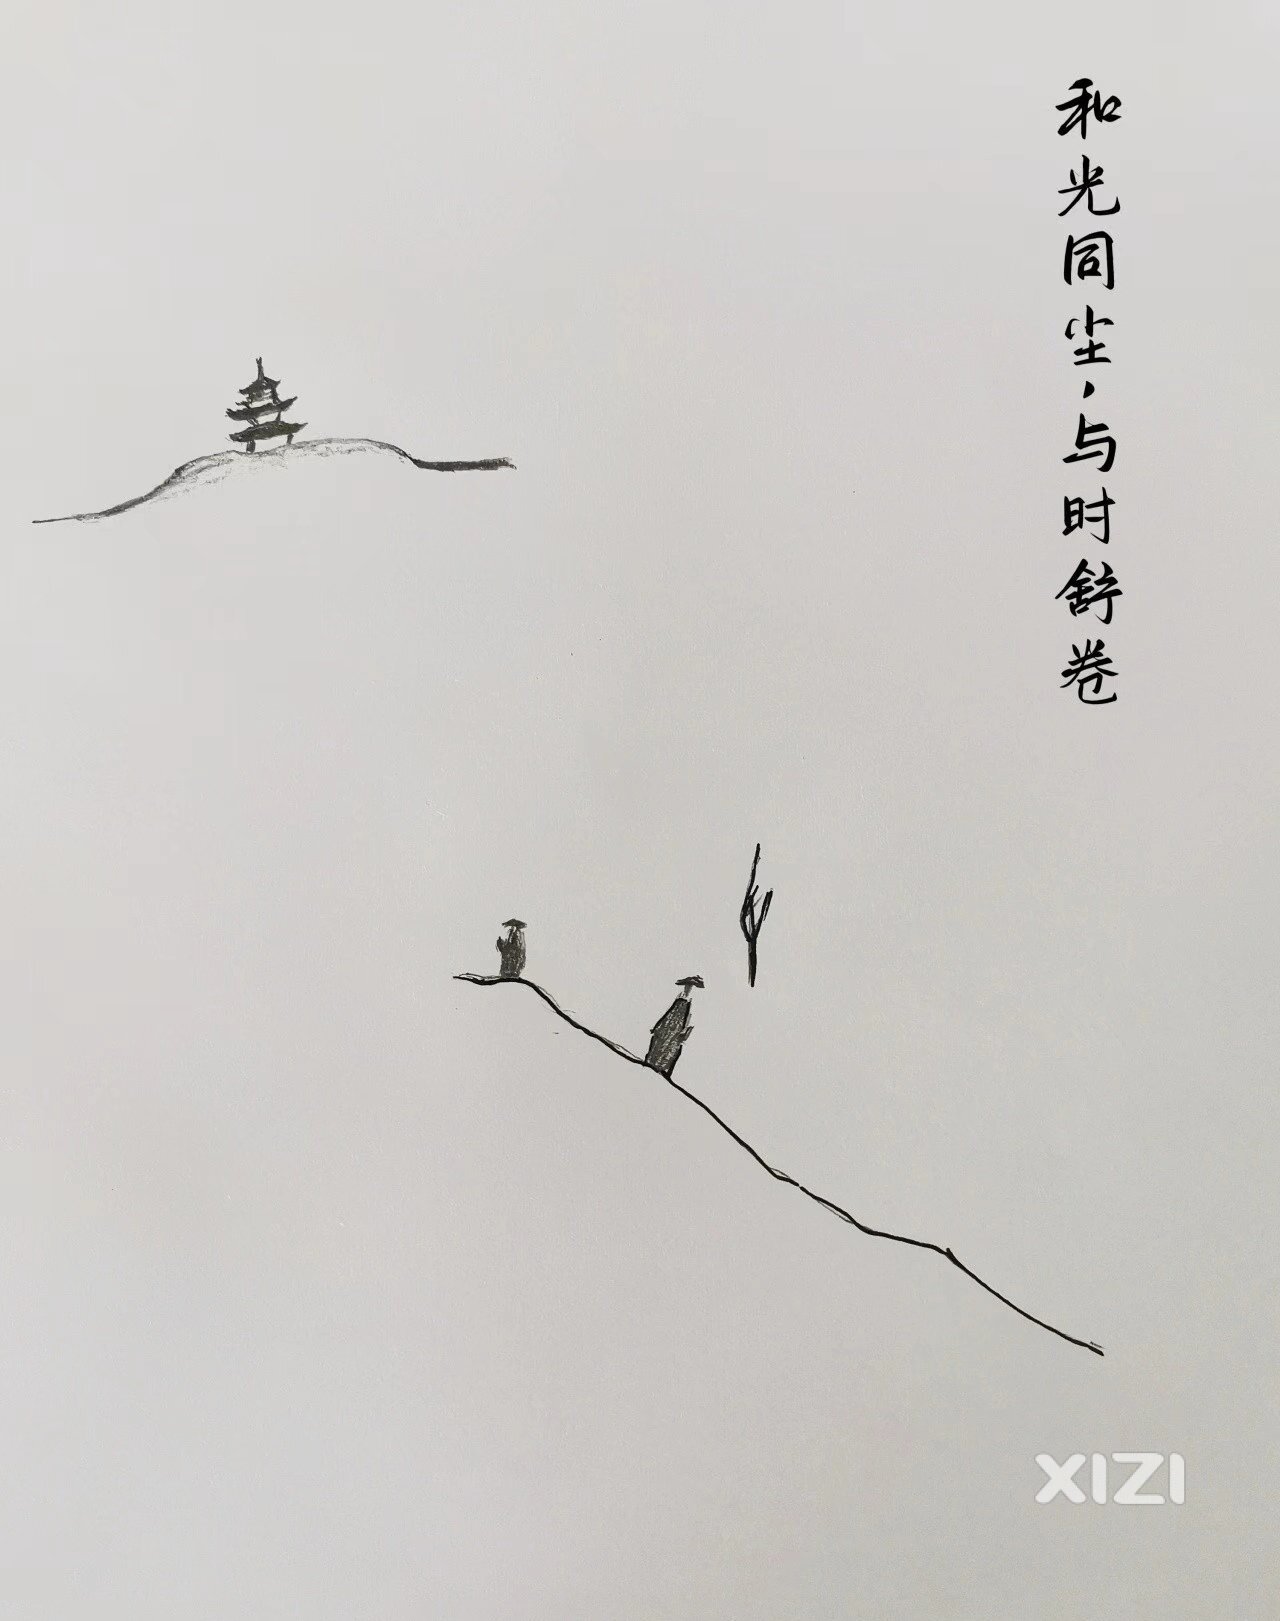 和光同尘，与时舒卷
XIZI